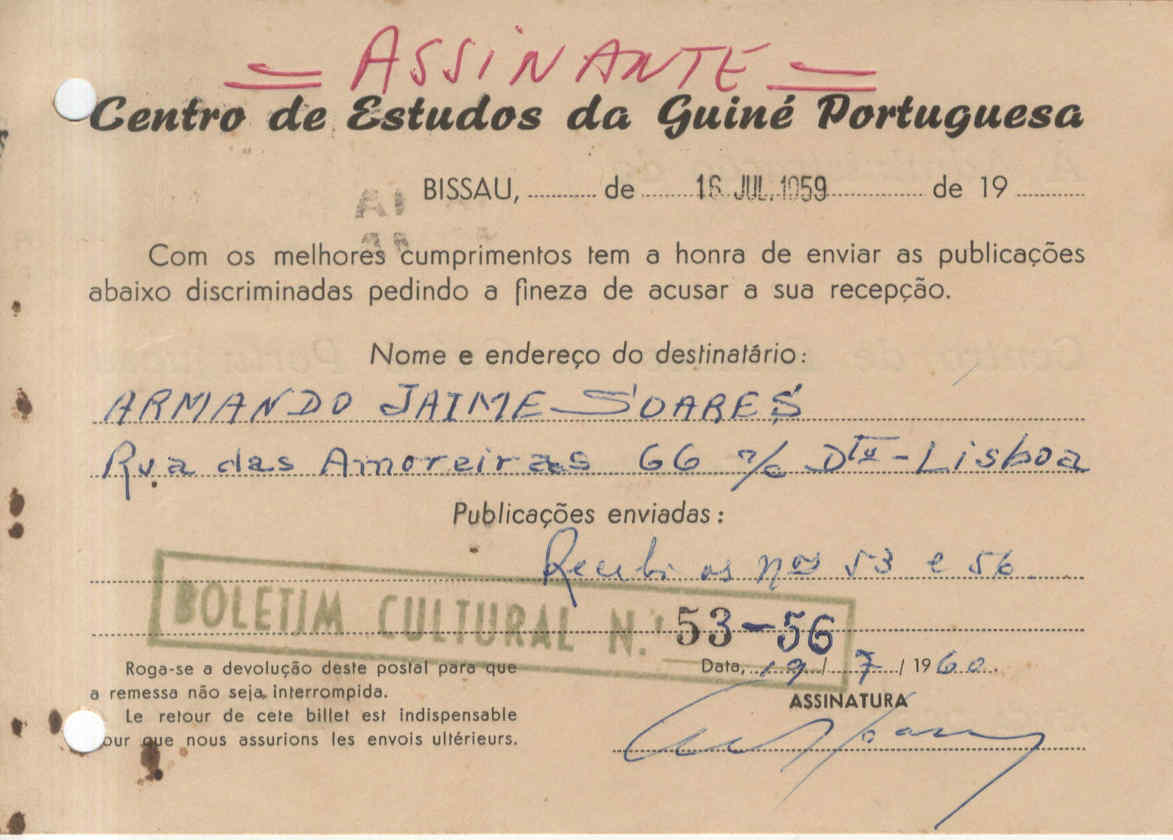 = ASSINANTE =
Centro de Estudos da Guiné Portuguesa
BISSAU, .......... de ...... 16 JUL. 1959 ............ de 19 ..........
Com os melhores cumprimentos tem a honra de enviar as publicações
abaixo discriminadas pedindo a fineza de acusar a sua recepção.
Nome e endereço do destinatário:
ARMANDO JAIME SOARES
Rua das Amoreiras 66 r/c Dto - Lisboa
Publicações enviadas:
Recebi os nos 53 e 56
BOLETIM CULTURAL N.º 53-56
Roga-se a devolução deste postal para que
a remessa não seja interrompida.
Le retour de cete billet est indispensable
our que nous assurions les envois ultérieurs.
Data, 19 / 7 / 1960
ASSINATURA